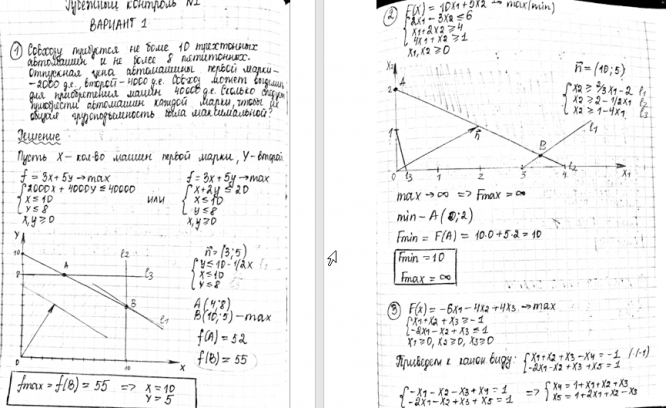 Рубежный контроль №1
ВАРИАНТ 1
① Совхозу требуется не более 10 трехтонных
автомашин и не более 8 пятитонных.
Отпускная цена автомашины первой марки -
- 2000 д.е., второй - 4000 д.е. Совхоз может выделить
для приобретения машин 40000 д.е. Сколько следует
приобрести автомашин каждой марки, чтобы их
общая грузоподъемность была максимальной?
Решение
Пусть X - кол-во машин первой марки, Y - второй
f = 3x + 5y → max
2000x + 4000y ≤ 40000
x ≤ 10
y ≤ 8
x, y ≥ 0
или
f = 3x + 5y → max
x + 2y ≤ 20
x ≤ 10
y ≤ 8
x, y ≥ 0
Y
10
8
A
l2
l3
B
l1
0
10
X
n = (3; 5)
y ≤ 10 - 1/2x
x ≤ 10
y ≤ 8
A (4; 8)
B (10; 5) - max
f(A) = 52
f(B) = 55
fmax = f(B) = 55 => x = 10
y = 5
② F(x) = 10x1 + 5x2 → max(min)
2x1 - 3x2 ≤ 6
x1 + 2x2 ≥ 4
4x1 + x2 ≥ 1
x1, x2 ≥ 0
n = (10; 5)
x2 ≥ 2/3x1 - 2 l1
x2 ≥ 2 - 1/2x1 l2
x2 ≥ 1 - 4x1 l3
X2
A
2
1
n
B
l1
0
l3
1
2
3
4
l2
X1
max → ∞ => Fmax = ∞
min - A (0; 2)
Fmin = F(A) = 10·0 + 5·2 = 10
Fmin = 10
Fmax = ∞
③ F(x) = -6x1 - 4x2 + 4x3 → max
x1 + x2 + x3 ≥ -1
-2x1 - x2 + x3 ≤ 1
x1 ≥ 0, x2 ≥ 0, x3 ≥ 0
Приведем к канон. виду:
x1 + x2 + x3 - x4 = -1 /·(-1)
-2x1 - x2 + x3 + x5 = 1
-x1 - x2 - x3 + x4 = 1
-2x1 - x2 + x3 + x5 = 1
=>
x4 = 1 + x1 + x2 + x3
x5 = 1 + 2x1 + x2 - x3